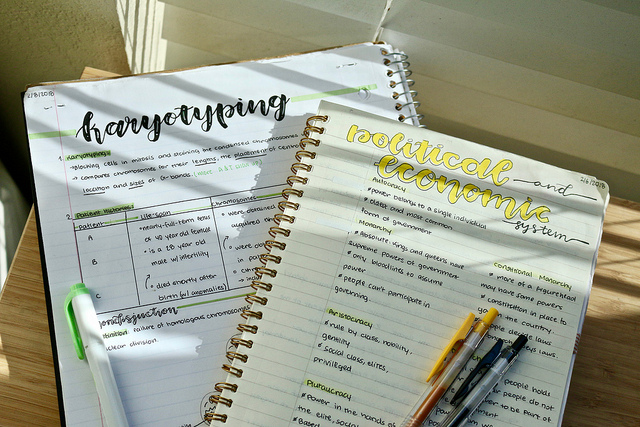 2/8/2018
karyotyping
1. Karyotyping:
→ blocking cells in mitosis and staining the condensed chromosomes
→ compares chromosomes for their lengths, the placement of
location and sizes of G-bands.
2. Patient Histories:
patient
life-span
chromosomes
A
• nearly-full-term fetus
of 40 year old female
• were obtained
B
• is a 28 year old
male w/ infertility
C
• died shortly after
birth (w/ anomalies)
nondisjunction
failure of homologous chromosomes
division.
political and
economic
system
2/6/2018
Autocracy
* power belongs to a single individual
* oldest and most common
form of government
Monarchy
* Absolute: kings and queens have
supreme powers of government
* only bloodlines to assume
power
* people can't participate in
governing
Aristocracy
* rule by class, nobility,
gentility
* social class, elites,
privileged
Plutocracy
* power in the hands of
the elite, social
* Based
Constitutional Monarchy
* more of a figurehead
may have some powers
* constitution in place to
the country
people decide laws
laws
people hold
people do not
to be part of